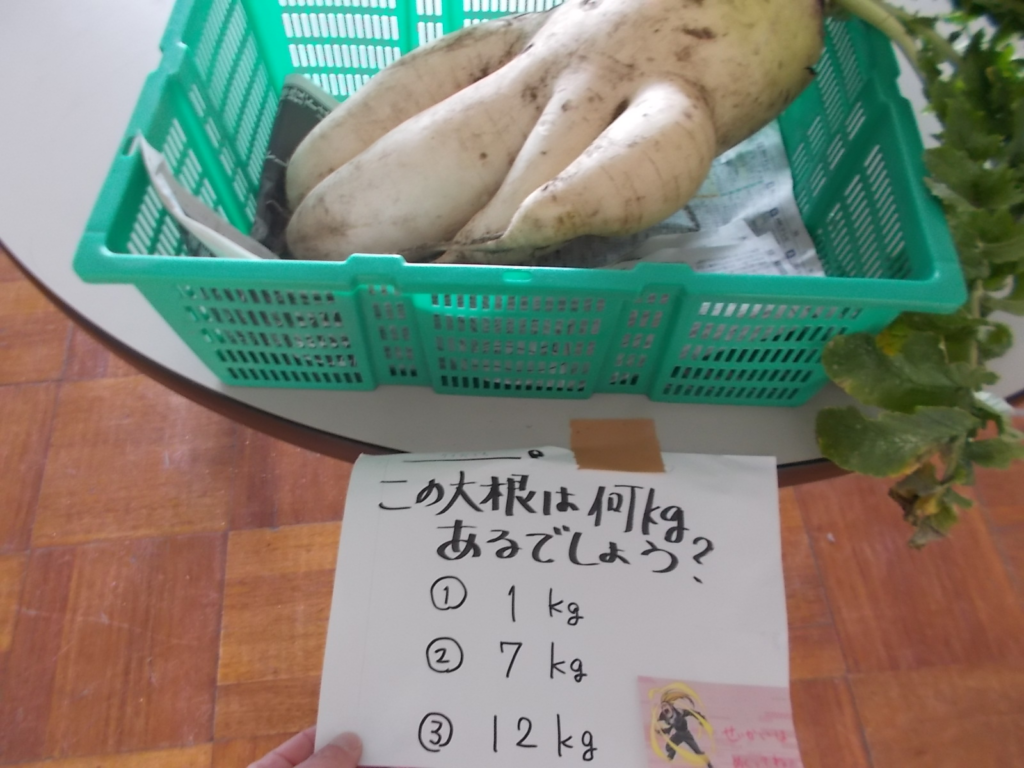 この大根は何kg
あるでしょう?
① 1 kg
② 7 kg
③ 12 kg